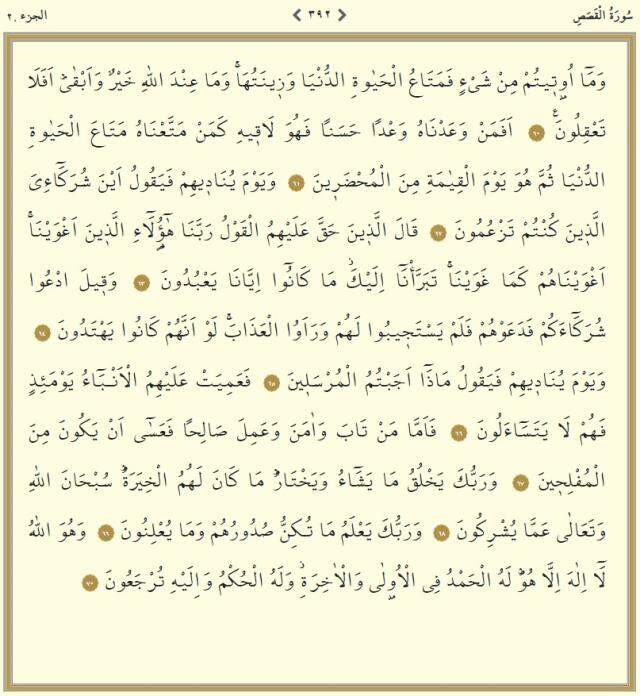 سُورَةُ الْقَصَصِ ❮ ٣٩٢ ❯ الجزء ٢٠
وَمَٓا اُو۫ت۪يتُمْ مِنْ شَيْءٍ فَمَتَاعُ الْحَيٰوةِ الدُّنْيَا وَز۪ينَتُهَاۚ وَمَا عِنْدَ اللّٰهِ خَيْرٌ وَاَبْقٰىۜ اَفَلَا
تَعْقِلُونَ۟ ﴿٦٠﴾ اَفَمَنْ وَعَدْنَاهُ وَعْدًا حَسَنًا فَهُوَ لَاق۪يهِ كَمَنْ مَتَّعْنَاهُ مَتَاعَ الْحَيٰوةِ
الدُّنْيَا ثُمَّ هُوَ يَوْمَ الْقِيٰمَةِ مِنَ الْمُحْضَر۪ينَ ﴿٦١﴾ وَيَوْمَ يُنَاد۪يهِمْ فَيَقُولُ اَيْنَ شُرَكَٓاءِيَ
الَّذ۪ينَ كُنْتُمْ تَزْعُمُونَ ﴿٦٢﴾ قَالَ الَّذ۪ينَ حَقَّ عَلَيْهِمُ الْقَوْلُ رَبَّنَا هٰٓؤُ۬لَٓاءِ الَّذ۪ينَ اَغْوَيْنَاۚ
اَغْوَيْنَاهُمْ كَمَا غَوَيْنَاۚ تَبَرَّأْنَٓا اِلَيْكَۘ مَا كَانُٓوا اِيَّانَا يَعْبُدُونَ ﴿٦٣﴾ وَق۪يلَ ادْعُوا
شُرَكَٓاءَكُمْ فَدَعَوْهُمْ فَلَمْ يَسْتَج۪يبُوا لَهُمْ وَرَاَوُا الْعَذَابَۚ لَوْ اَنَّهُمْ كَانُوا يَهْتَدُونَ ﴿٦٤﴾
وَيَوْمَ يُنَاد۪يهِمْ فَيَقُولُ مَاذَٓا اَجَبْتُمُ الْمُرْسَل۪ينَ ﴿٦٥﴾ فَعَمِيَتْ عَلَيْهِمُ الْاَنْبَٓاءُ يَوْمَئِذٍ
فَهُمْ لَا يَتَسَٓاءَلُونَ ﴿٦٦﴾ فَاَمَّا مَنْ تَابَ وَاٰمَنَ وَعَمِلَ صَالِحًا فَعَسٰٓى اَنْ يَكُونَ مِنَ
الْمُفْلِح۪ينَ ﴿٦٧﴾ وَرَبُّكَ يَخْلُقُ مَا يَشَٓاءُ وَيَخْتَارُۜ مَا كَانَ لَهُمُ الْخِيَرَةُۜ سُبْحَانَ اللّٰهِ
وَتَعَالٰى عَمَّا يُشْرِكُونَ ﴿٦٨﴾ وَرَبُّكَ يَعْلَمُ مَا تُكِنُّ صُدُورُهُمْ وَمَا يُعْلِنُونَ ﴿٦٩﴾ وَهُوَ اللّٰهُ
لَٓا اِلٰهَ اِلَّا هُوَۜ لَهُ الْحَمْدُ فِي الْاُو۫لٰى وَالْاٰخِرَةِۘ وَلَهُ الْحُكْمُ وَاِلَيْهِ تُرْجَعُونَ ﴿٧٠﴾